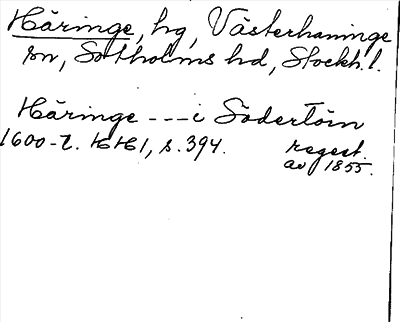 Häringe, hg, Västerhaninge
sn, Sotholms hd, Stockh. l.
Häringe --- i Södertörn
1600-t. HH1, s. 394. regest.
av 1855.